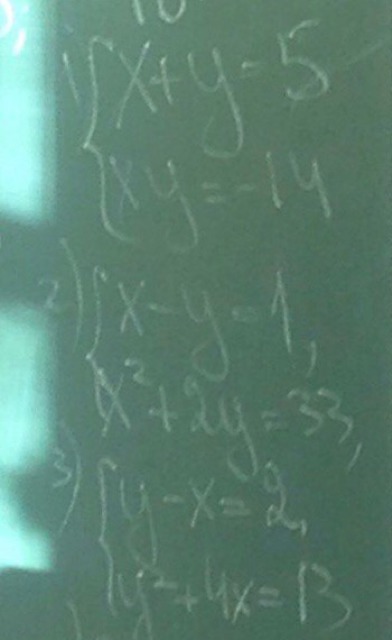 10
1) { x + y = 5
xy = -14
2) { x - y = 1,
x² + 2y = 33,
3) { y - x = 2,
y² + 4x = 13